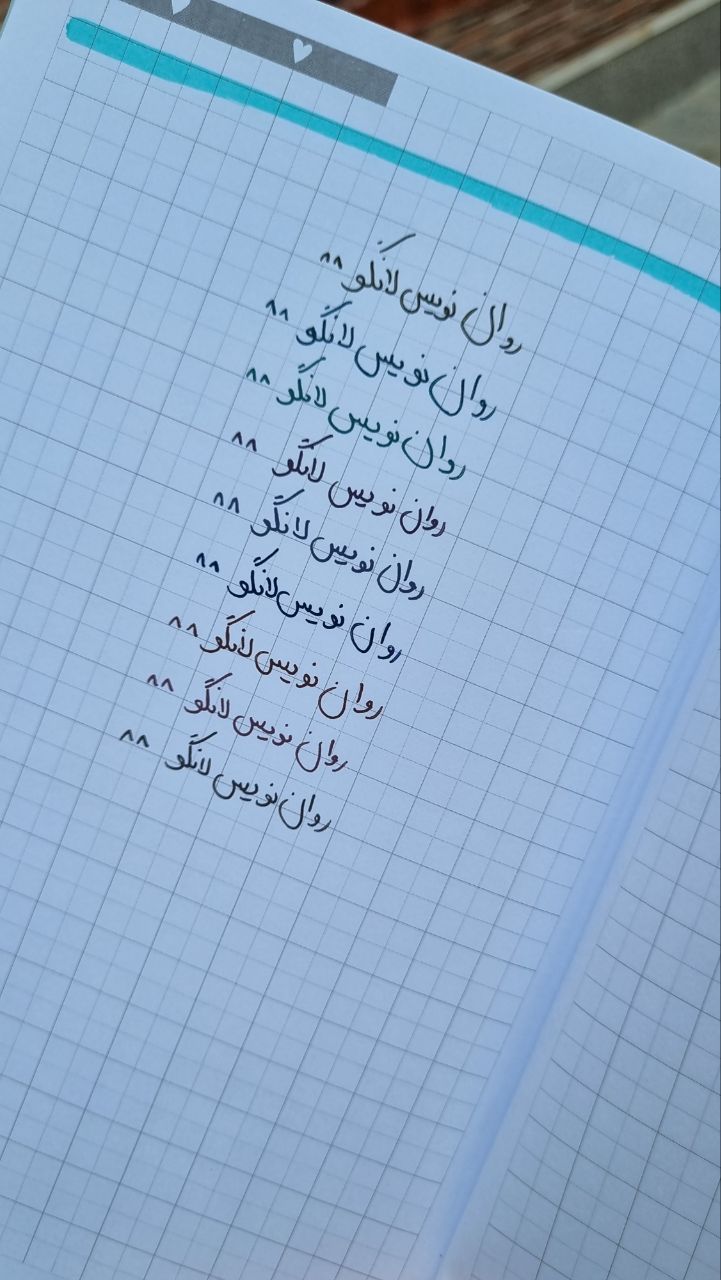 روان نویس لانگو ^^
روان نویس لانگو ^^
روان نویس لانگو ^^
روان نویس لانگو ^^
روان نویس لانگو ^^
روان نویس لانگو ^^
روان نویس لانگو ^^
روان نویس لانگو ^^
روان نویس لانگو ^^